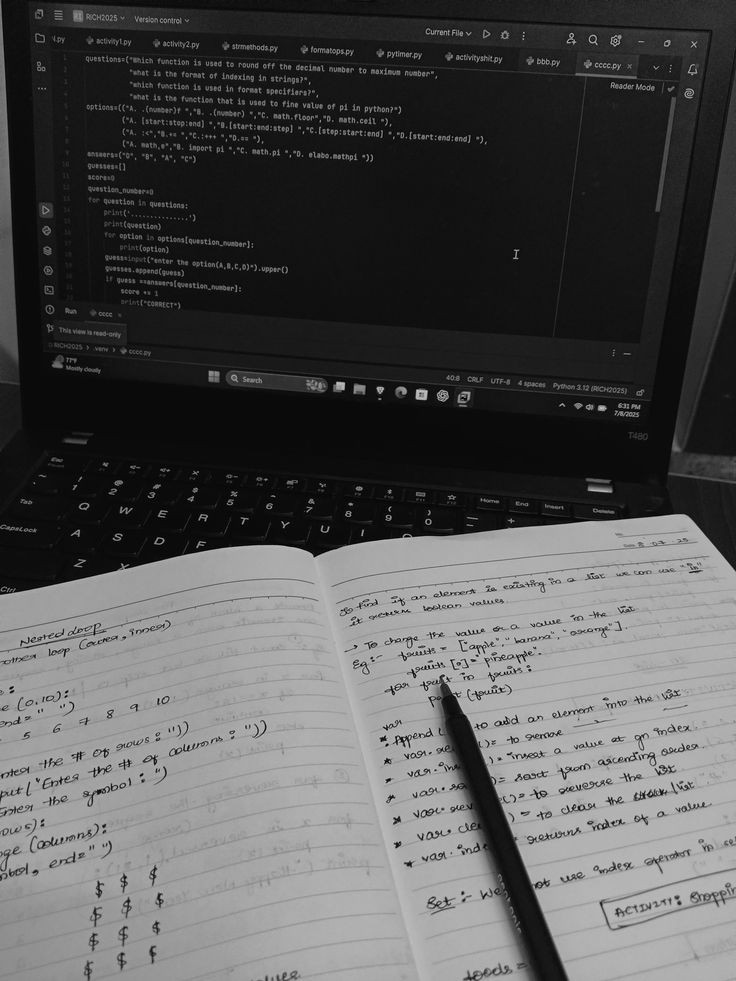 RICH2025 Version control Current File
activity1.py activity2.py strmethods.py formatops.py pytimer.py activityshit.py bbb.py cccc.py
Reader Mode
questions=("Which function is used to round off the decimal number to maximum number",
"what is the format of indexing in strings?",
"which function is used in format specifiers?",
"what is the function that is used to fine value of pi in python?")
options=(("A. .(number)f ","B. .(number) ","C. math.floor","D. math.ceil "),
("A. [start:stop:end] ","B.[start:end:step] ","C.[step:start:end] ","D.[start:end:end] "),
("A. :<","B.+= ","C.:+++ ","D.== "),
("A. math,e","B. import pi ","C. math.pi ","D. elabo.mathpi "))
answers=("D", "B", "A", "C")
guesses=[]
score=0
question_number=0
for question in questions:
print('...............')
print(question)
for option in options[question_number]:
print(option)
guess=input("enter the option(A,B,C,D)").upper()
guesses.append(guess)
if guess ==answers[question_number]:
score += 1
print("CORRECT")
Run cccc
This view is read-only
RICH2025 > .venv > cccc.py
40:8 CRLF UTF-8 4 spaces Python 3.12 (RICH2025)
77°F
Mostly cloudy
Search
6:31 PM
7/8/2025
T480
Esc
Home End Insert Delete
1 2 3 4 5 6 7 8 9 0
Tab Q W E R T Y U I
CapsLock A S D
Z
Ctrl
Nested loop
another loop (outer, inner)
(0,10):
end=" ")
5 6 7 8 9 10
Enter the # of rows : "))
put("Enter the # of columns : "))
Enter the symbol : ")
rows):
ge (columns):
mbol, end=" ")
$ $ $
$ $ $
$ $ $
$ $ $
Date 8-07-25
To find if an element is existing in a list we can use "in"
it returns boolean values.
→ To change the value or a value in the list
Eg :- fruits = ["apple", "banana", "orange"].
fruits [0] = "pineapple".
for fruit in fruits :
print (fruit)
var
* . Append ( to add an element into the list
* var. )= to remove
* var. in )= insert a value at gn index.
* var. so )= sort from ascending order.
* var. rev ()= to reverse the list
* var. cle ) = to clear the list.
* var. inde returns index of a value.
Set :- We not use index operator in se
ACTIVITY: Shoppin
foods =